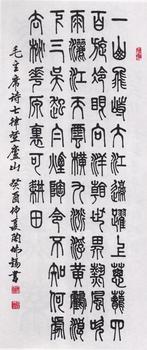 一山飛峙大江邊躍上蔥蘢四
百旋冷眼向洋看世界熱風吹
雨灑江天雲橫九派浮黃鶴浪
下三吳起白煙陶令不知何處
去桃花源裏可耕田
毛主席詩七律登廬山 癸酉仲夏 書